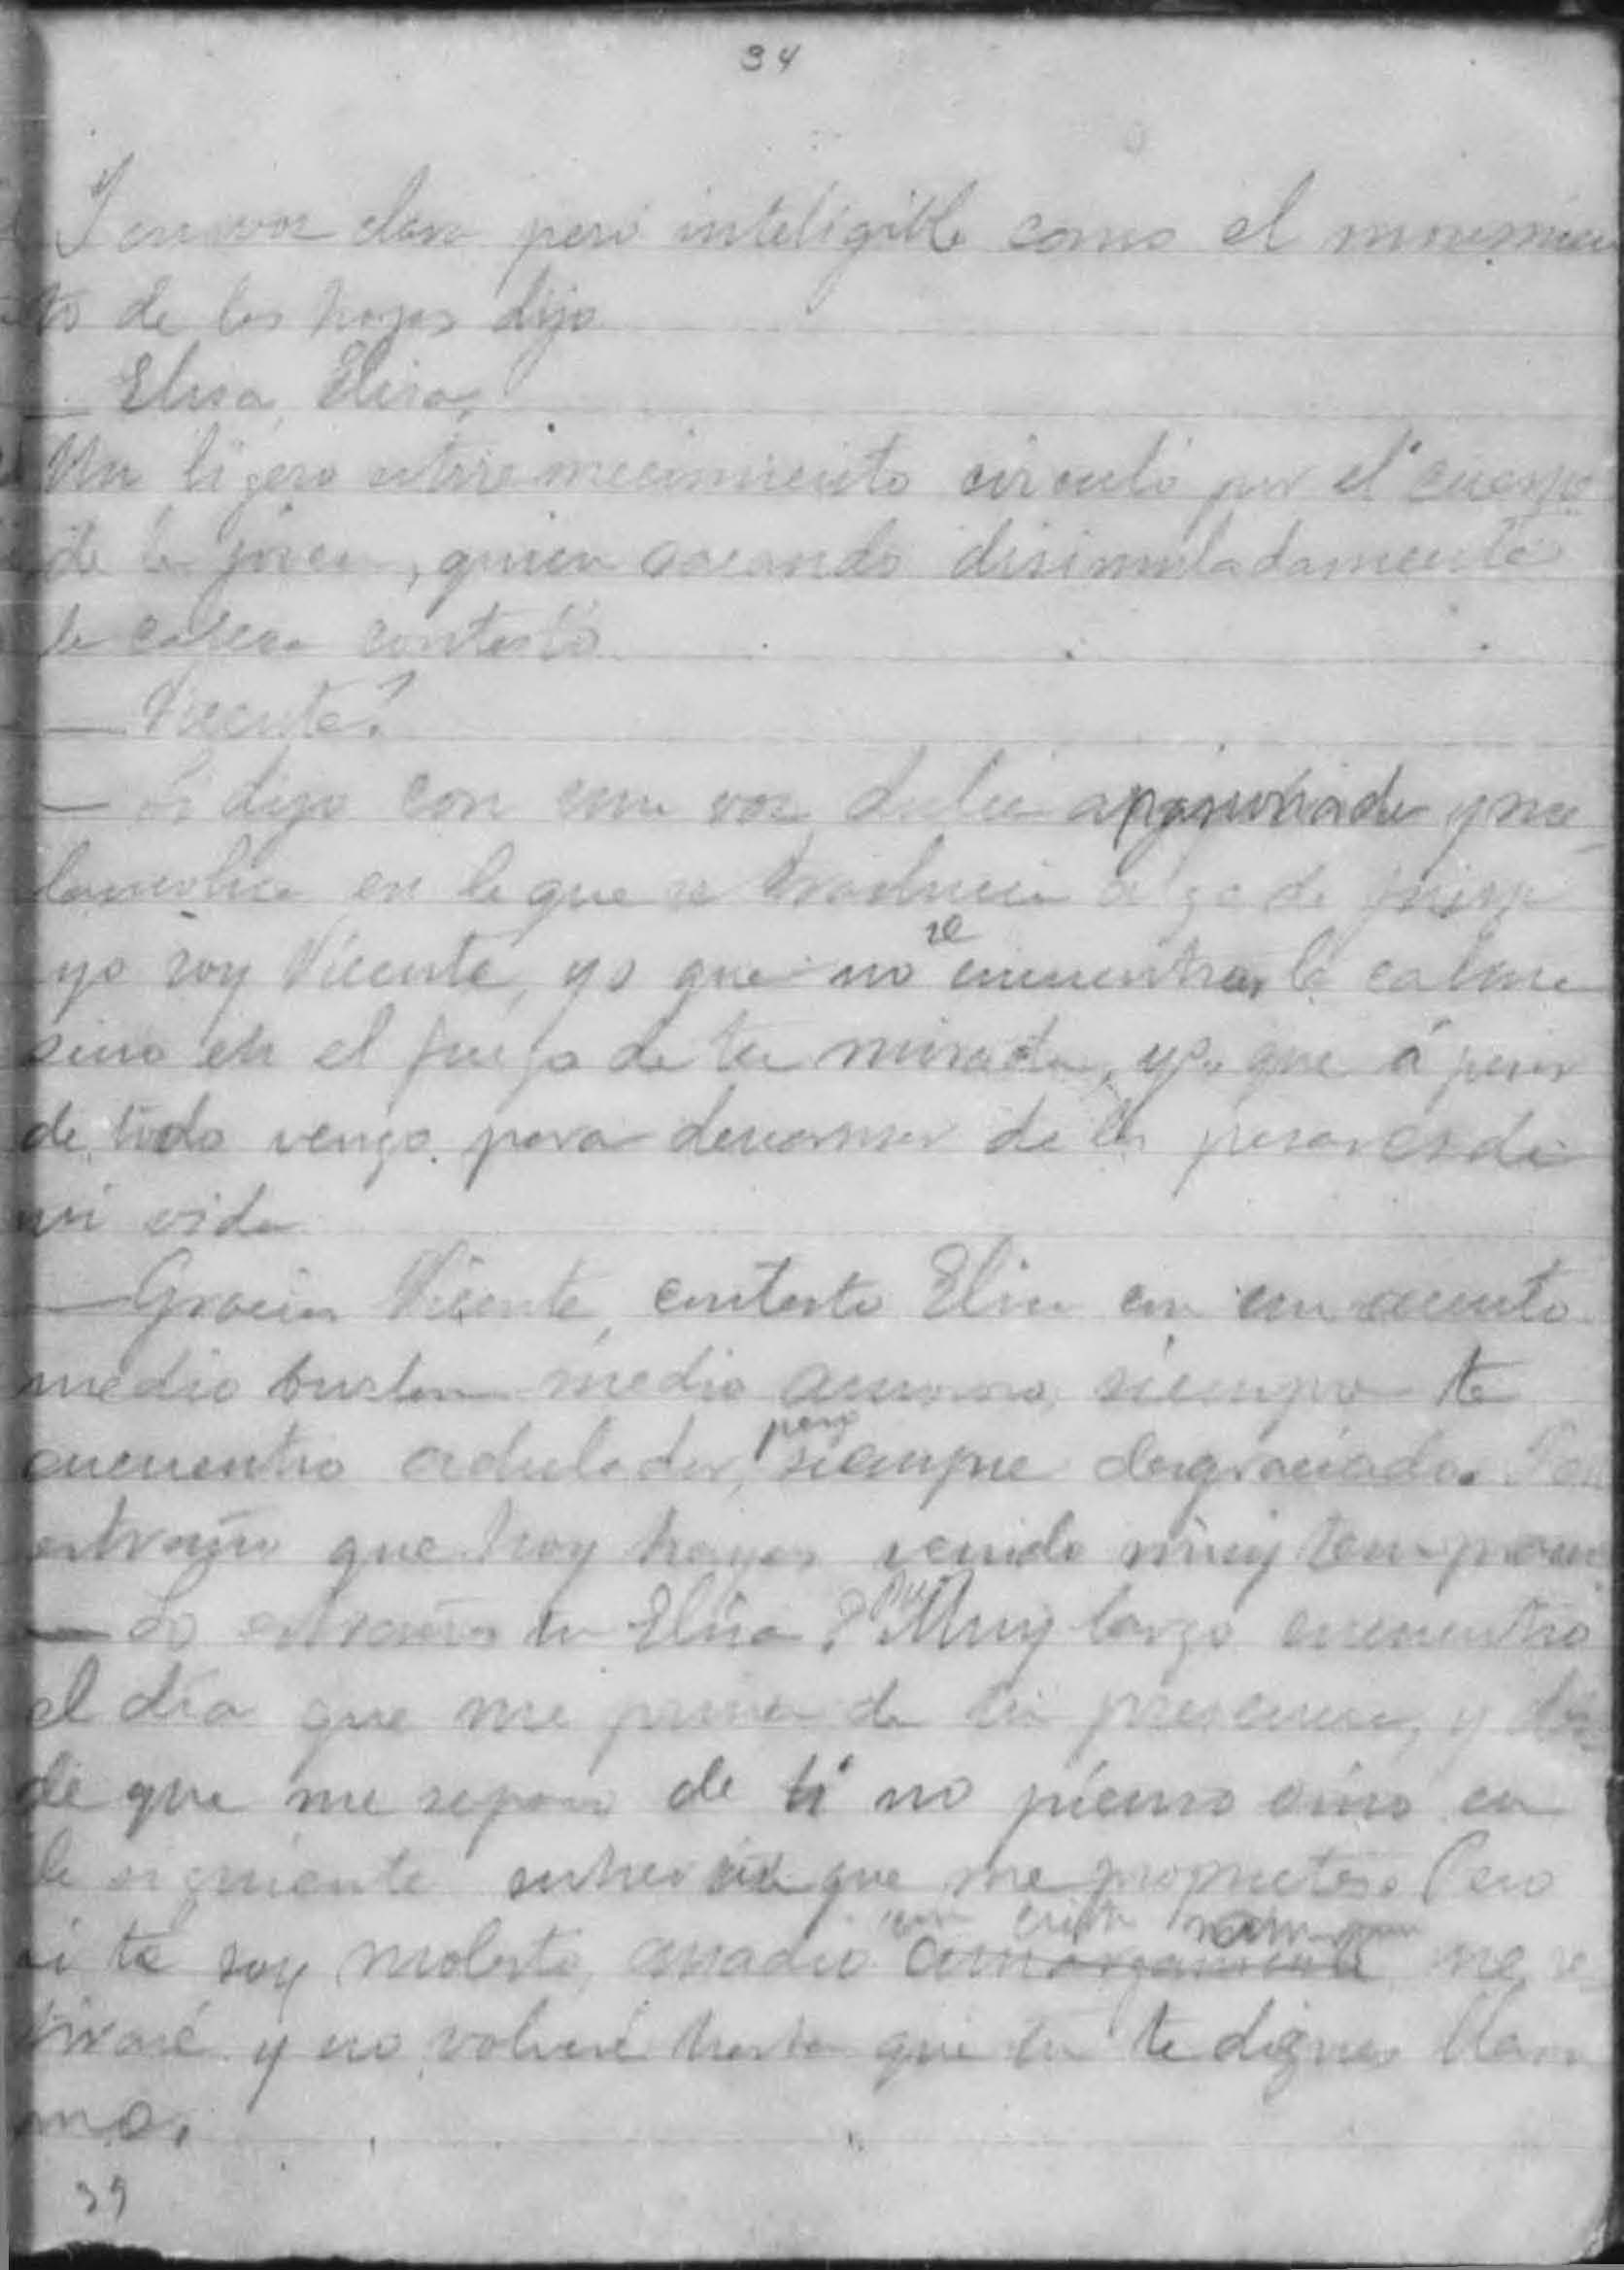 34
Y en voz clara pero inteligible como el movimien
to de las hojas dijo
— Elisa, Elisa,
Un ligero estremecimiento circuló por el cuerpo
de la joven, quien sacando disimuladamente
la cabeza contestó
— Vicente?
— Si dijo con una voz dulce apasionada y me
lancolica en la que se traducia algo de
yo soy Vicente, yo que no se encuentra la calma
sino en el fuego de tu mirada, yo que á pesar
de todo vengo para descansar de los pesares de
mi vida
— Gracias Vicente, contesto Elisa con un acento
medio burlon medio amoroso, siempre te
encuentro adulador, pero siempre desgraciado.
extraño que hoy hayas venido muy tempran
— Lo extrañas tu Elisa? Muy largo encuentro
el dia que me priva de tu presencia, y des
de que me separo de ti no pienso sino en
la siguiente entrevista que me prometes. Pero
si te soy molesto, añadio con cierta amargamente me re
tiraré y no volveré hasta que tu te dignes llam
me.
39